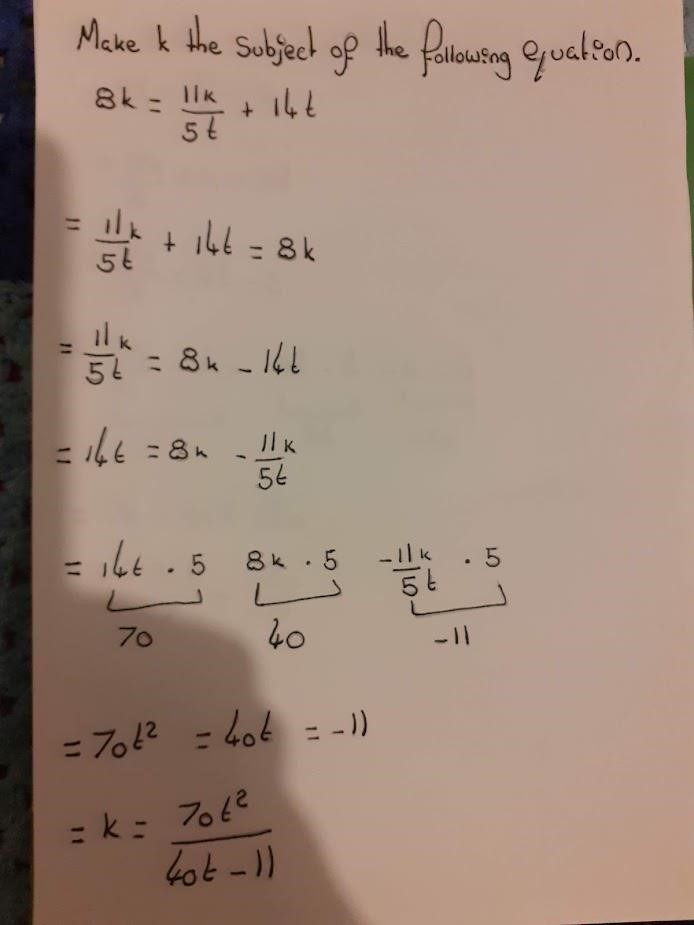 Make k the subject of the following equation.
8k = 11k/5t + 14t
= 11k/5t + 14t = 8k
= 11k/5t = 8k - 14t
= 14t = 8k - 11k/5t
= 14t . 5 8k . 5 -11k/5t . 5
70 40 -11
= 70t² = 40t = -11
= k = 70t²/40t - 11